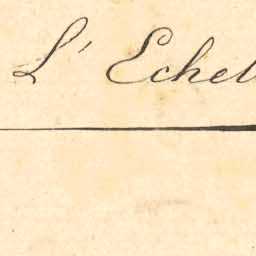 L' Echel